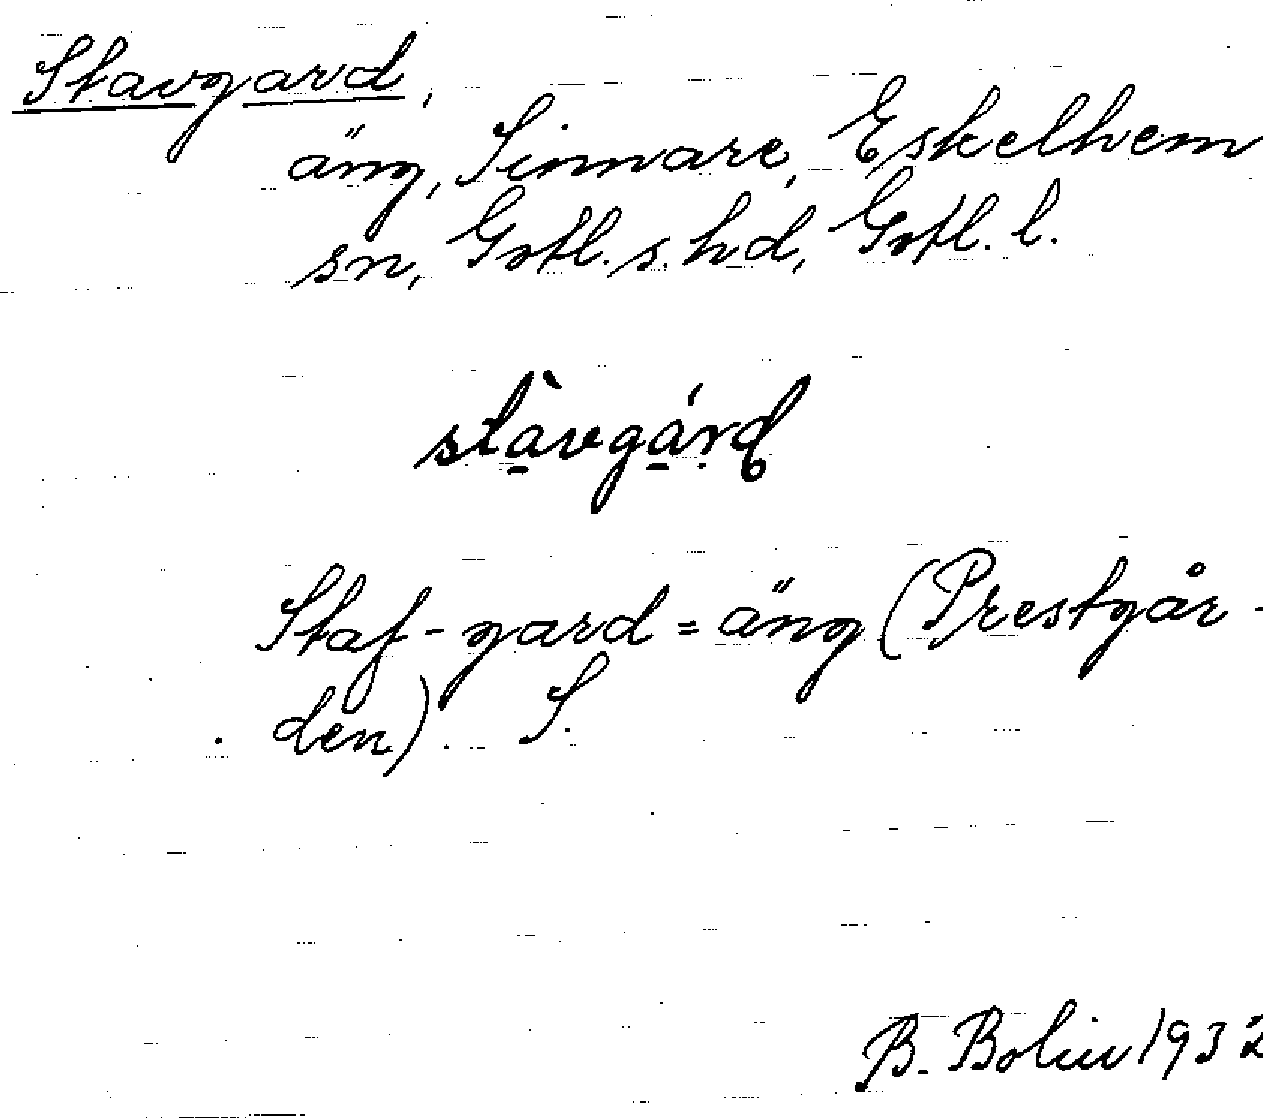 Stavgard,
äng, Sinnare, Eskelhem
sn, Gotl. s. hd, Gotl. l.
stàvgárd
Staf-gard = äng (Prestgår-
den). S.
B. Bolin 1932